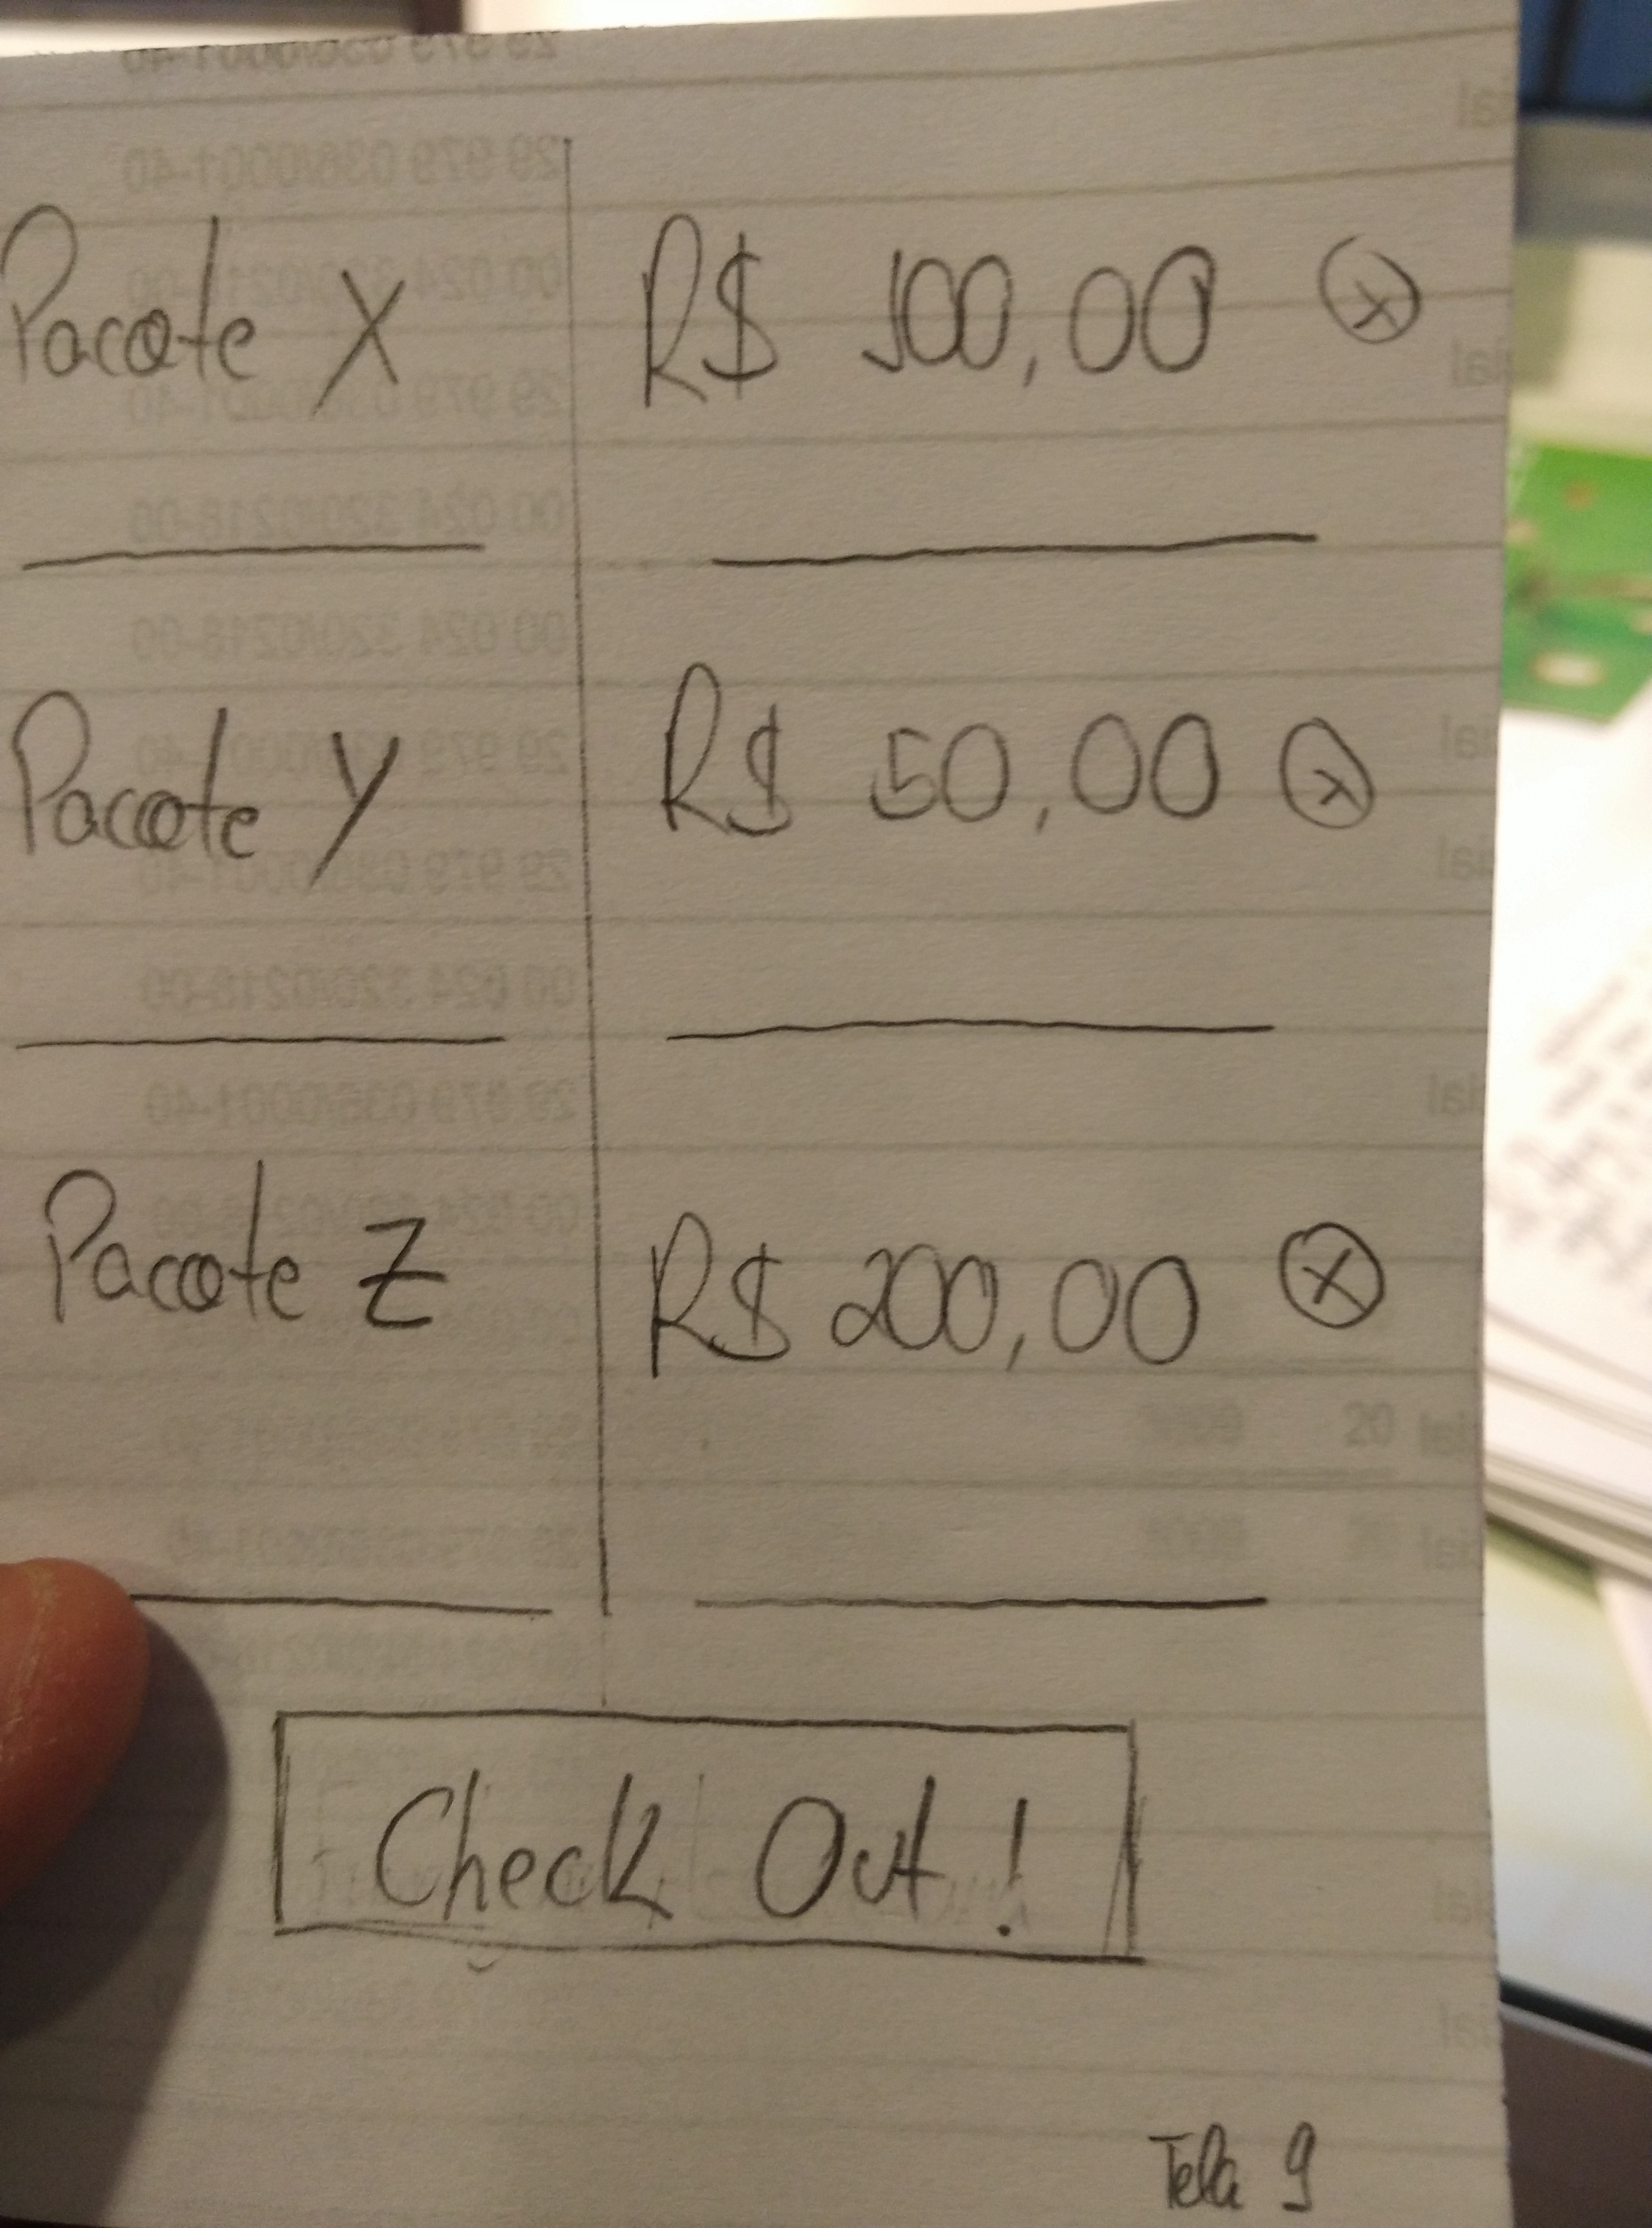 Pacote X R$ 100,00 X
Pacote Y R$ 50,00 X
Pacote Z R$ 200,00 X
Check Out!
Tela 9